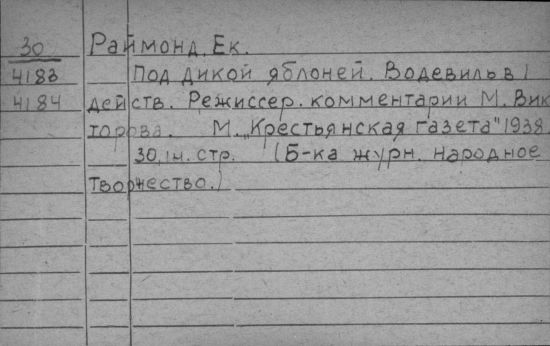 30 Раймонд, Ек.
4183 Под дикой яблоней. Водевиль в 1
4184 действ. Режиссер. комментарии М. Вик
торова. М. „Крестьянская газета" 1938
30, стр. (Б-ка журн. народное
творчество.)